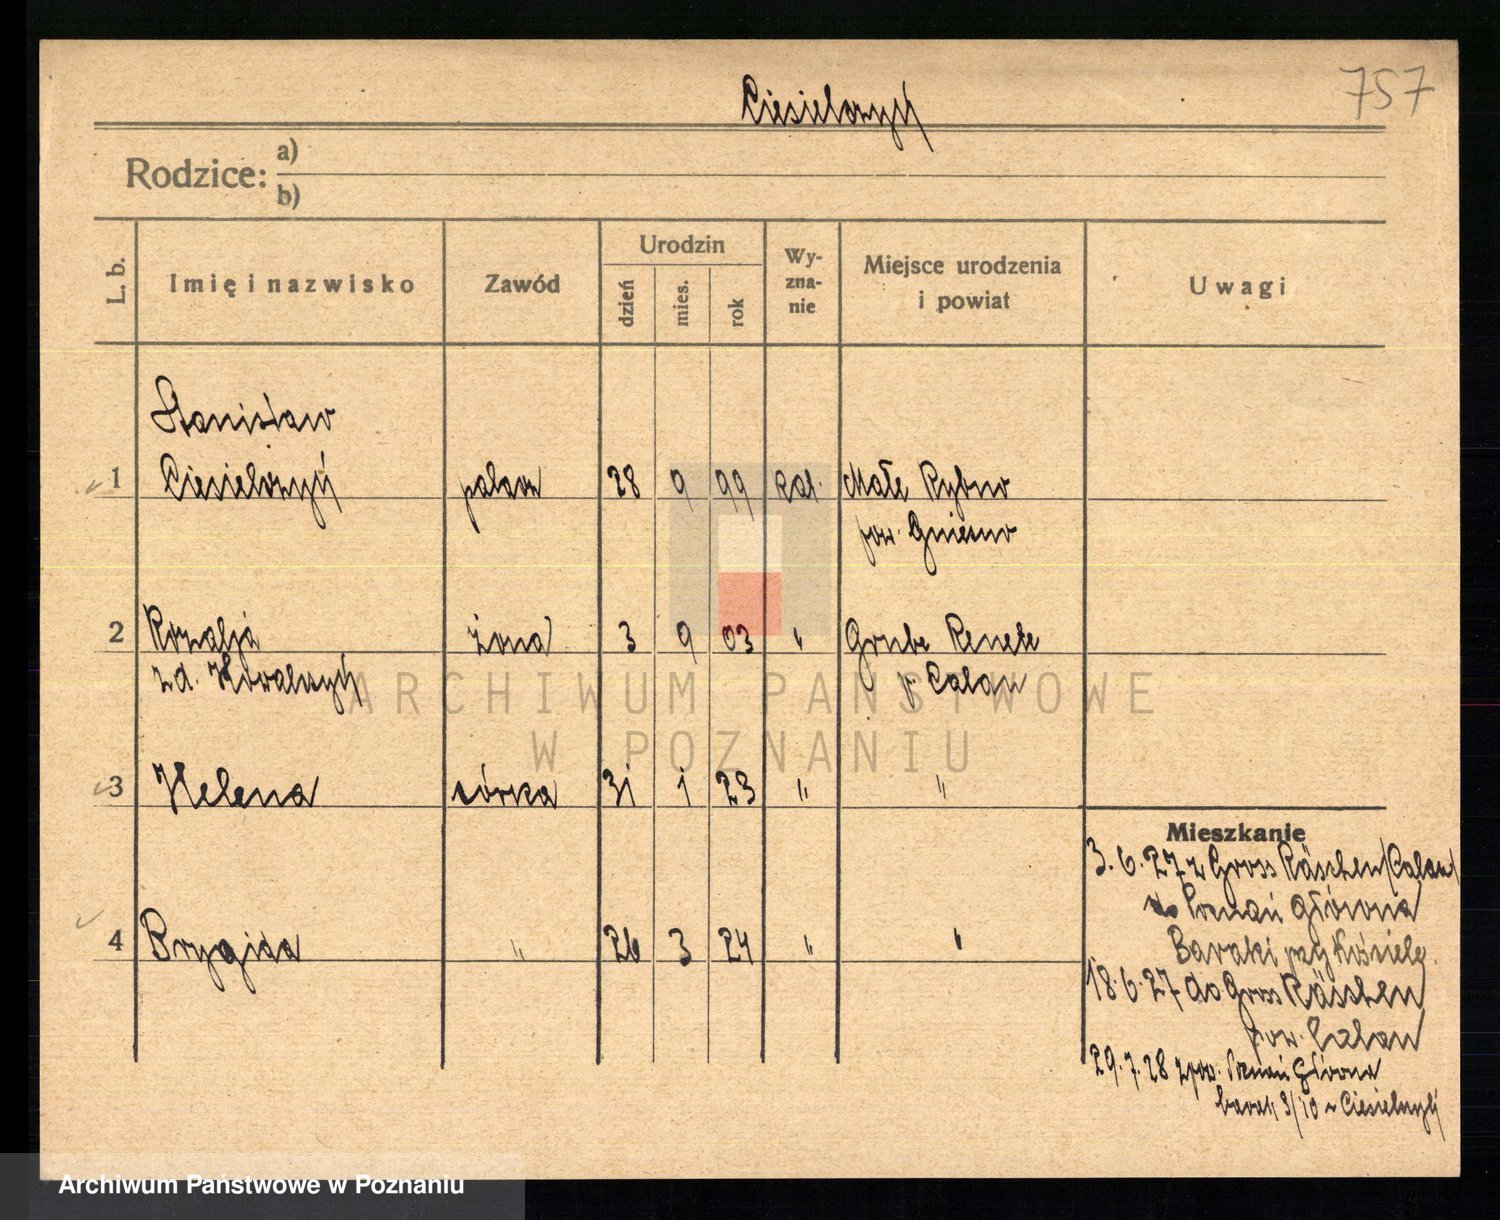 757
Ciesielczyk
Rodzice: a)
b)
L. b.
Imię i nazwisko
Zawód
Urodzin
dzień
mies.
rok
Wy-
zna-
nie
Miejsce urodzenia
i powiat
Uwagi
Stanisław
1 Ciesielczyk palacz 28 9 99 kat. Małe Rybno
pow. Gniezno
2 Rozalja żona 3 9 03 " Grube Renate
z d. Kowalczyk p Calau
3 Helena córka 31 1 23 " "
4 Brygida " 26 3 24 " "
Mieszkanie
3.6.27 z Gross Räschen (Calau)
do Poznań Główna
Baraki przy Kościele.
18.6.27 do Gross Räschen
pow. Calau
29.7.28 zpow. Poznań Główna
barak 3/10 u Ciesielczyk
ARCHIWUM PAŃSTWOWE
W POZNANIU
Archiwum Państwowe w Poznaniu